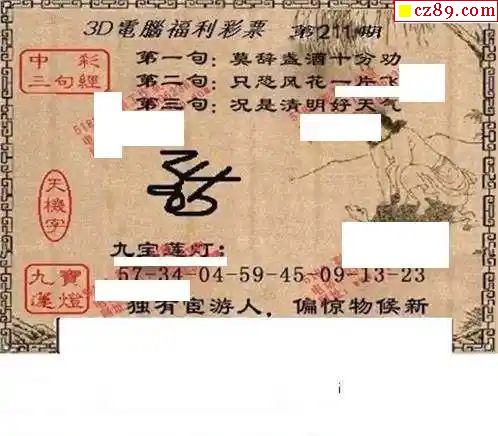 cz89.com
3D電腦福利彩票 第211期
中彩
三句經
第一句：莫辞盏酒十分劝
第二句：只恐风花一片飞
第三句：况是清明好天气
天機字
九宝莲灯：
九寶蓮燈
57-34-04-59-45-09-13-23
独有宦游人，偏惊物候新
i